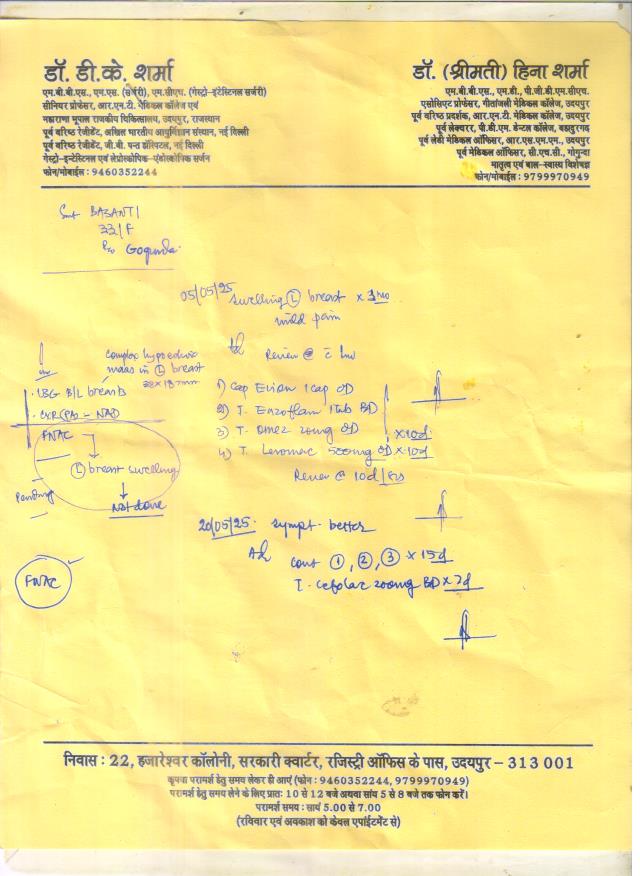 डॉ. डी.के. शर्मा
एम.बी.बी.एस., एम.एस. (सर्जरी), एम.सीएच. (गेस्ट्रो-इंटेस्टिनल सर्जरी)
सीनियर प्रोफेसर, आर.एन.टी. मेडिकल कॉलेज एवं
महाराणा भूपाल राजकीय चिकित्सालय, उदयपुर, राजस्थान
पूर्व वरिष्ठ रेजीडेंट, अखिल भारतीय आयुर्विज्ञान संस्थान, नई दिल्ली
पूर्व वरिष्ठ रेजीडेंट, जी.बी. पन्त हॉस्पिटल, नई दिल्ली
गेस्ट्रो-इन्टेस्टिनल एवं लेप्रोस्कोपिक-एंडोस्कोपिक सर्जन
फोन/मोबाईल : 9460352244
डॉ. (श्रीमती) हिना शर्मा
एम.बी.बी.एस., एम.डी., पी.जी.डी.एम.सीएच.
एसोसिएट प्रोफेसर, गीतांजली मेडिकल कॉलेज, उदयपुर
पूर्व वरिष्ठ प्रदर्शक, आर.एन.टी. मेडिकल कॉलेज, उदयपुर
पूर्व लेक्चरर, पी.डी.एम. डेन्टल कॉलेज, बहादुरगढ़
पूर्व लेडी मेडिकल ऑफिसर, आर.एस.एम.एम., उदयपुर
पूर्व मेडिकल ऑफिसर, सी.एच.सी., गोगुन्दा
मातृत्व एवं बाल-स्वास्थ्य विशेषज्ञ
फोन/मोबाईल : 9799970949
Smt BASANTI
33/F
R/o Gogunda
05/05/25 swelling (L) breast x 3mo
mild pain
Ad Review @ c Inv
Inv complex hypoechoic
mass in (L) breast
USG B/L breasts
CXR (PA) - NAD
FNAC
(L) breast swelling
Not done
Pending
1) Cap Evion 1 cap OD
2) T. Enzoflam 1 tab BD
3) T. Omez 20mg OD x 10d
4) T. Levomac 500mg OD x 10d
Review @ 10d/
20/05/25. Sympt. better
Ad cont (1), (2), (3) x 15d
T. cefolac 200mg BD x 7d
FNAC
निवास : 22, हजारेश्वर कॉलोनी, सरकारी क्वार्टर, रजिस्ट्री ऑफिस के पास, उदयपुर – 313 001
कृपया परामर्श हेतु समय लेकर ही आएं (फोन : 9460352244, 9799970949)
परामर्श हेतु समय लेने के लिए प्रातः 10 से 12 बजे अथवा सांय 5 से 8 बजे तक फोन करें।
परामर्श समय : सायं 5.00 से 7.00
(रविवार एवं अवकाश को केवल एपॉइंटमेंट से)